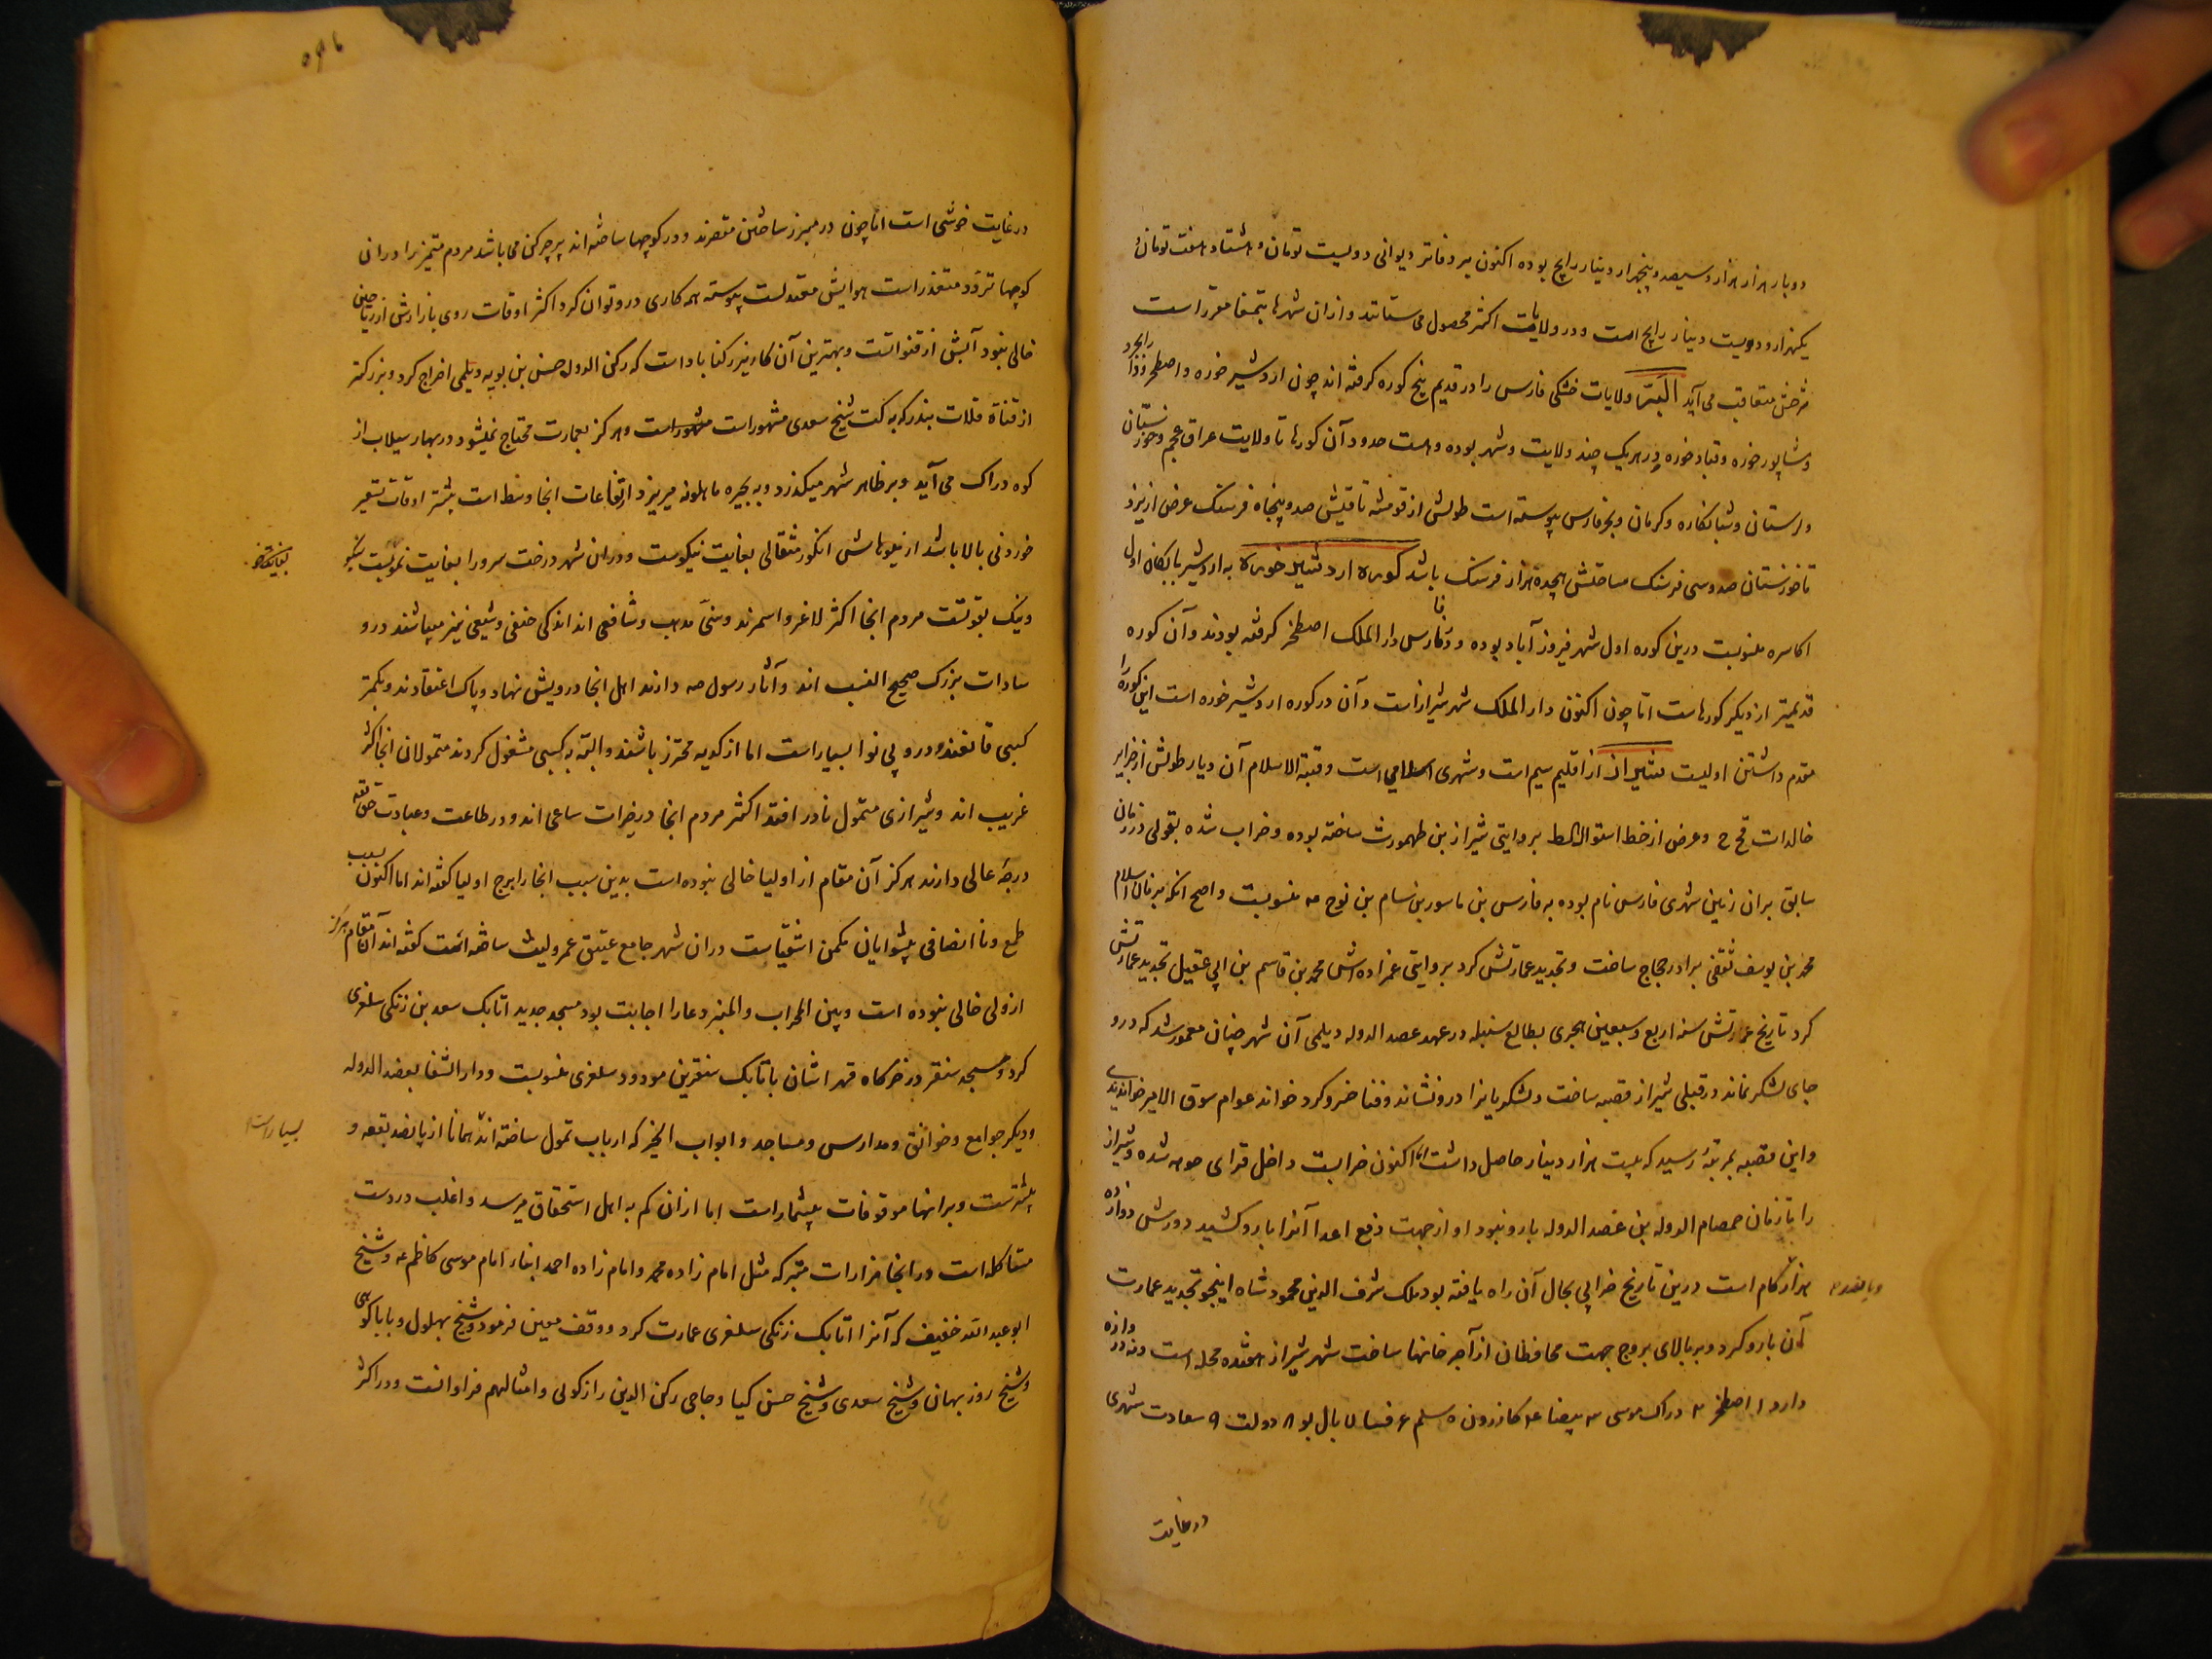 دوبار هزار هزار و سیصد و پنجهزار دینار رایج بوده اکنون بر دفاتر دیوانی دویست تومان و هشتاد و هفت تومان و
یکهزار و دویست دینار رایج است و در ولایات اکثر محصول می ستانند و از ان شهرها بتمغا مقرر است
متعاقب می آید البته ولایات خشکی فارس را در قدیم پنج کوره گرفته اند چون اردشیر خوره و اصطخر و دارابجرد
و شاپور خوره و قباد خوره و در هر یک چند ولایت و شهر بوده و هست حدود آن کورها تا ولایت عراق عجم و خوزستان
و لرستان و شبانکاره و کرمان و بحر فارس پیوسته است طولش از قومشه تا قیش صد و پنجاه فرسنک عرض از یزد
تا خوزستان صد و سی فرسنک مساحتش هجده هزار فرسنک باشد کوره اردشیر خوره به اردشیر بابکان اول
اکاسره منسوبست درین کوره اول شهر فیروزآباد بوده و در فارس دار الملک اصطخر گرفته بودند و آن کوره
قدیمتر از دیکر کورهاست اما چون اکنون دار الملک شهر شیراز است و آن در کوره اردشیر خوره است این کوره را
مقدم داشتن اولیست شیراز از اقلیم سیم است و شهری اسلامی است و قبة الاسلام آن دیار طولش از جزایر
خالدات فح ح و عرض از خط استوا الط بروایتی شیراز بن طهمورث ساخته بوده و خراب شده بقولی در زمان
سابق بران زمین شهری فارس نام بوده به فارس بن ماسور بن سام بن نوح عه منسوبست و اصح انکه بزمان اسلام
محمد بن یوسف ثقفی برادر حجاج ساخت و تجدید عمارتش کرد بروایتی عمزاده اش محمد بن قاسم بن ابی عقیل تجدید عمارتش
کرد تاریخ عمارتش سنه اربع و سبعین هجری بطالع سنبله در عهد عضد الدوله دیلمی آن شهر چنان معمور شد که درو
جای لشکر نماند در قبلی شیراز قصبه ساخت و لشکریانرا درو نشاند و فنا خسرو کرد خواند عوام سوق الامیر خواندندی
و این قصبه بمرتبهٔ رسید که بیست هزار دینار حاصل داشت اما اکنون خرابست داخل قرای حومه شده و شیراز
را تا زمان صمصام الدوله بن عضد الدوله بارو نبود او از جهت دفع اعدا آنرا بارو کشید دورش دوازده
هزار کام است درین تاریخ خرابی بحال آن راه یافته بود ملک شرف الدین محمود شاه اینجو تجدید عمارت
و پانصد
آن بارو کرد و بر بالای بروج جهت محافظان از آجر خانها ساخت شهر شیراز هفده محله است و نه دروازه
دارد ۱ اصطخر ۲ دراک موسی ۳ بیضا ۴ کازرون ۵ سلم ۶ فسا ۷ بال بو ۸ دولت ۹ سعادت شهری
در غایت
در غایت خوشی است اما چون در مبرز ساختن مقصرند و در کوچها ساخته اند پر چرکن می باشد مردم متمیز را در ان
کوچها تردد متعذر است هوایش معتدلست پیوسته همه کاری درو توان کرد اکثر اوقات روی بازارش از ریاحین
خالی نبود آبش از قنواتست و بهترین آن کاریز رکناباد است که رکن الدوله حسن بن بویه دیلمی اخراج کرد و بزرکتر
از قناة قلات بندر که به کت شیخ سعدی مشهور است مشهور است و هرکز بعمارت محتاج نمیشود و در بهار سیلاب از
کوه دراک می آید و بر ظاهر شهر میکذرد و به بحیره ماهلونه میریزد ارتفاعات انجا وسط است بیشتر اوقات تسعیر
خوردنی بالا باشد از میوهاش انکور مثقالی بغایت نیکوست و در ان شهر درخت سرو را بغایت نموبست نیکو
و نیک بقوتست مردم انجا اکثر لاغر و اسمرند و سنی مذهب و شافعی اند اندکی حنفی و شیعی نیز میباشند و درو
سادات بزرک صحیح النسب اند و آثار رسول صه دارند اهل انجا درویش نهاد و پاک اعتقادند و بکمتر
کسبی قانعند و درو بی نوا بسیار است اما از کدیه محترز باشند و البته به کسبی مشغول کردند متمولان انجا اکثر
غریب اند و شیرازی متمول نادر افتد اکثر مردم انجا در خیرات ساعی اند و در طاعت و عبادت حق تعه
درجهٔ عالی دارند هرکز آن مقام از اولیا خالی نبوده است بدین سبب انجا را برج اولیا کفته اند اما اکنون بسبب
طمع و نا انصافی پیشوایان مکمن اشقیاست در ان شهر جامع عتیق عمرو لیث ساخته است کفته اند آن مقام هرکز
از ولی خالی نبوده است و بین المحراب و المنبر دعا را اجابت بود مسجد جدید اتابک سعد بن زنکی سلغری
کرد و مسجد سنقر در خرکاه تراشان باتابک سنقر بن مودود سلغری منسوبست و دار الشفا بعضد الدوله
و دیکر جوامع و خوانق و مدارس و مساجد و ابواب الخیر که ارباب تمول ساخته اند همانا از پانصد بقعه و
بسیار است
بیشترست و بر انها موقوفات بیشمار است اما از ان کم به اهل استحقاق میرسد و اغلب در دست
متاکله است در انجا مزارات متبرکه مثل امام زاده محمد و امام زاده احمد ابناء امام موسی کاظم عه و شیخ
ابو عبد الله خفیف که آنرا اتابک زنکی سلغری عمارت کرد و وقف معین فرمود و شیخ بهلول و بابا کوهی
و شیخ روزبهان و شیخ سعدی و شیخ حسن کیا و حاجی رکن الدین رازکو و امثالهم فراوانست و در اکثر